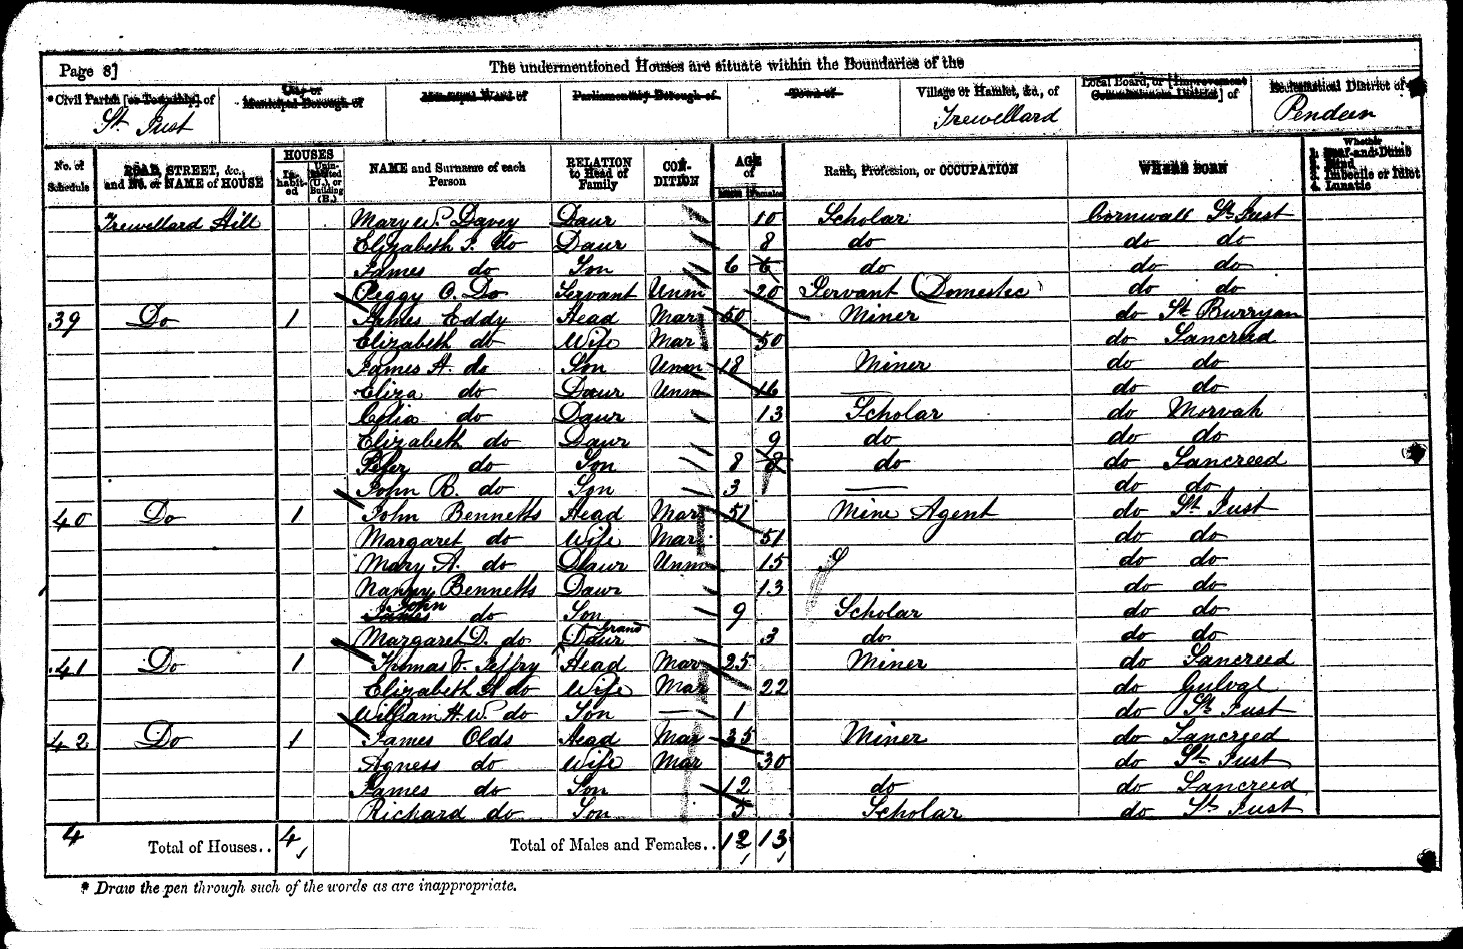 Page 8]
The undermentioned Houses are situate within the Boundaries of the
*Civil Parish [or Township] of
St. Just
City or Municipal Borough of
Municipal Ward of
Parliamentary Borough of
Town of
Village or Hamlet, &c., of
Trewellard
Local Board, or [Improvement Commissioners District] of
Ecclesiastical District of
Pendeen
No. of Schedule
ROAD, STREET, &c., and No. or NAME of HOUSE
HOUSES
In-habit-ed
Unin-habited (U.), or Building (B.)
NAME and Surname of each Person
RELATION to Head of Family
CON-DITION
AGE of
Males
Females
Rank, Profession, or OCCUPATION
WHERE BORN
Whether
1. Deaf-and-Dumb
2. Blind
3. Imbecile or Idiot
4. Lunatic
Trewellard Hill Mary W. Davey Daur 10 Scholar Cornwall St. Just
Elizabeth J. do Daur 8 do do do
James do Son 6 6 do do do
Peggy O. Do Servant Unm 20 Servant (Domestic) do do
39 Do 1 James Eddy Head Mar 50 Miner do St. Burryan
Elizabeth do Wife Mar 50 do Sancreed
James H. do Son Unm 18 Miner do do
Eliza do Daur Unm 16 do do
Celia do Daur 13 Scholar do Morvah
Elizabeth do Daur 9 do do do
Peter do Son 8 8 do do Sancreed
John R. do Son 3 do do
40 Do 1 John Bennetts Head Mar 51 Mine Agent do St. Just
Margaret do Wife Mar 51 do do
Mary A. do Daur Unm 15 S do do
Nanny Bennetts Daur 13 do do
James John do Son 9 Scholar do do
Margaret D. do Grand Daur 3 do do do
41 Do 1 Thomas J. Jeffry Head Mar 25 Miner do Sancreed
Elizabeth A do Wife Mar 22 do Gulval
William H. W. do Son 1 do St. Just
42 Do 1 James Olds Head Mar 35 Miner do Sancreed
Agness do Wife Mar 30 do St. Just
James do Son 12 do do Sancreed
Richard do Son 5 Scholar do St. Just
4 Total of Houses.. 4 Total of Males and Females.. 12 13
* Draw the pen through such of the words as are inappropriate.